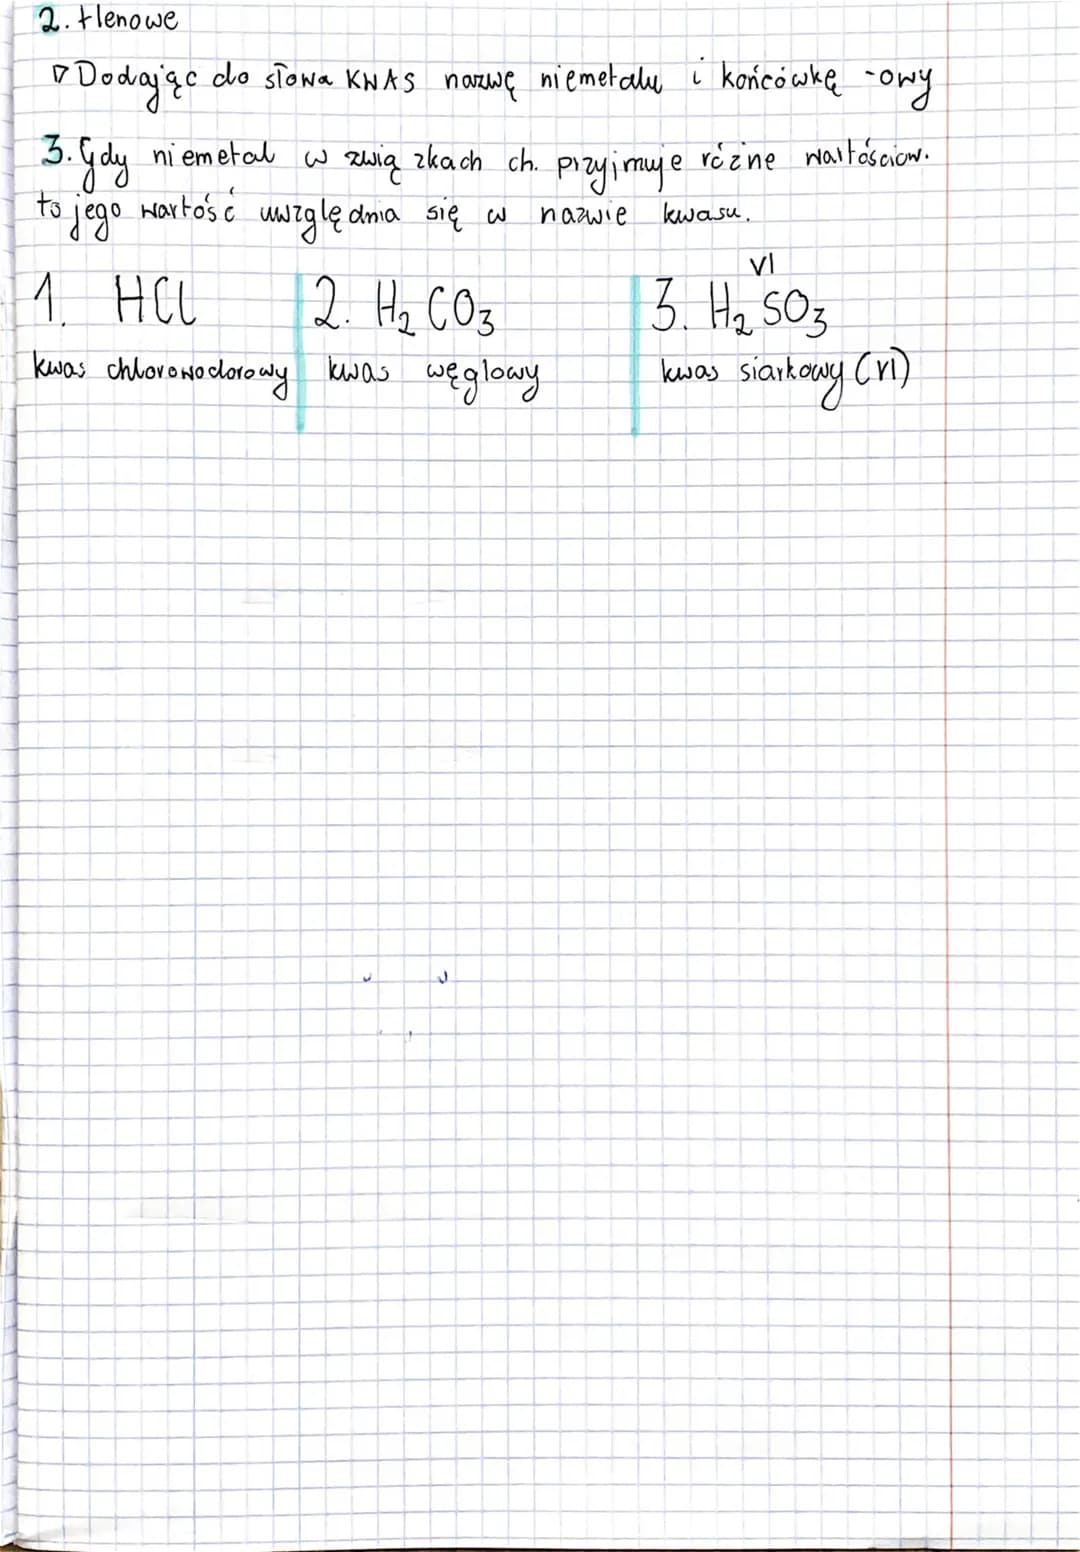 2. tlenowe
▷ Dodając do słowa KWAS nazwę niemetalu i końcówkę -owy
3. Gdy niemetal w związkach ch. przyjmuje różne wartościow.
to jego wartość uwzględnia się w nazwie kwasu.
1. HCl 2. H₂CO₃ 3. H₂SO₃ VI
kwas chlorowodorowy kwas węglowy kwas siarkowy (VI)